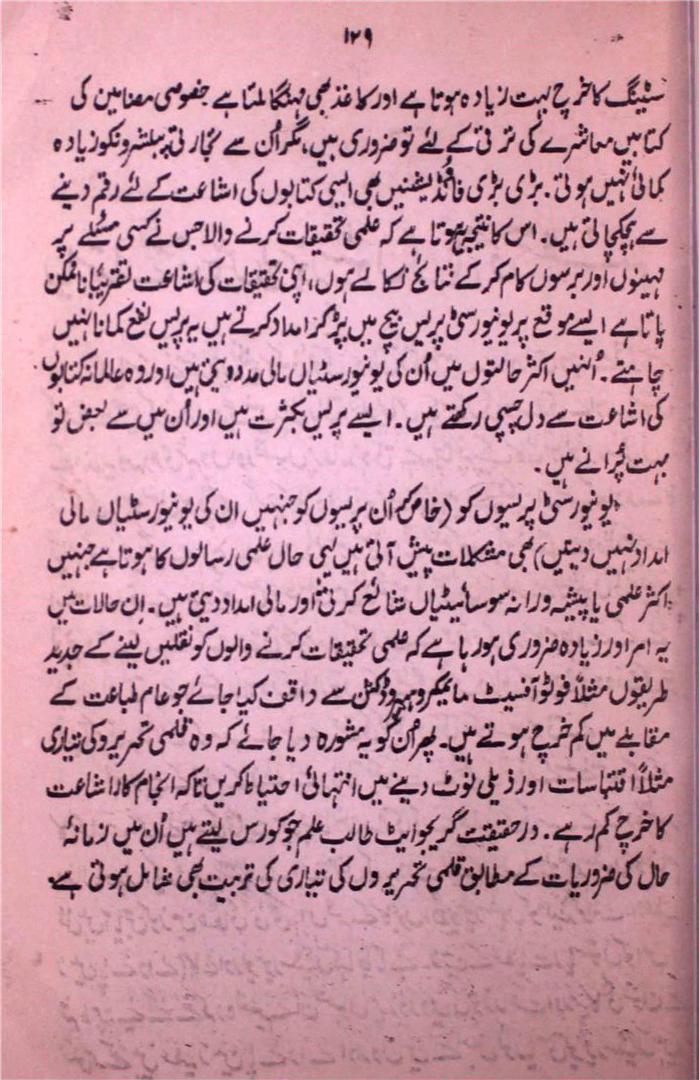 ۱۲۹
سٹینگ کا خرچ بہت زیادہ ہوتا ہے اور کاغذ بھی مہنگا ملتا ہے خصوصی مضامین کی
کتابیں معاشرے کی ترقی کے لئے تو ضروری ہیں، مگر اُن سے تجارتی پبلشرونکو زیادہ
کمائی نہیں ہوتی۔ بڑی بڑی فاؤنڈیشنیں بھی ایسی کتابوں کی اشاعت کے لئے رقم دینے
سے ہچکچاتی ہیں۔ اس کا نتیجہ یہ ہوتا ہے کہ علمی تحقیقات کرنے والا جس نے کسی مسئلے پر
مہینوں اور برسوں کام کر کے نتائج نکالے ہوں، اپنی تحقیقات کی اشاعت تقریباً ناممکن
پاتا ہے ایسے موقع پر یونیورسٹی پریس بیچ میں پڑ کر امداد کرتے ہیں یہ پریس نفع کمانا نہیں
چاہتے۔ اُنہیں اکثر حالتوں میں اُن کی یونیورسٹیاں مالی مدد دیتی ہیں اور وہ عالمانہ کتابوں
کی اشاعت سے دل چسپی رکھتے ہیں۔ ایسے پریس بکثرت ہیں اور اُن میں سے بعض تو
بہت پُرانے ہیں۔
یونیورسٹی پریسوں کو (خاص کر اُن پریسوں کو جنہیں ان کی یونیورسٹیاں مالی
امداد نہیں دیتیں) بھی مشکلات پیش آتی ہیں یہی حال علمی رسالوں کا ہوتا ہے جنہیں
اکثر علمی یا پیشہ ورانہ سوسائیٹیاں شائع کرتی اور مالی امداد دیتی ہیں۔ اِن حالات میں
یہ امر اور زیادہ ضروری ہو رہا ہے کہ علمی تحقیقات کرنے والوں کو نقلیں لینے کے جدید
طریقوں مثلاً فوٹو آفسیٹ مائیکرو سے واقف کیا جائے جو عام طباعت کے
مقابلے میں کم خرچ ہوتے ہیں۔ پھر اُن کو یہ مشورہ دیا جائے کہ وہ قلمی تحریرو کی تیاری
مثلاً اقتباسات اور ذیلی نوٹ دینے میں انتہائی احتیاط کریں تاکہ انجام کار اشاعت
کا خرچ کم رہے۔ درحقیقت گریجوایٹ طالب علم جو کورس لیتے ہیں اُن میں زمانۂ
حال کی ضروریات کے مطابق قلمی تحریروں کی تیاری کی تربیت بھی شامل ہوتی ہے۔